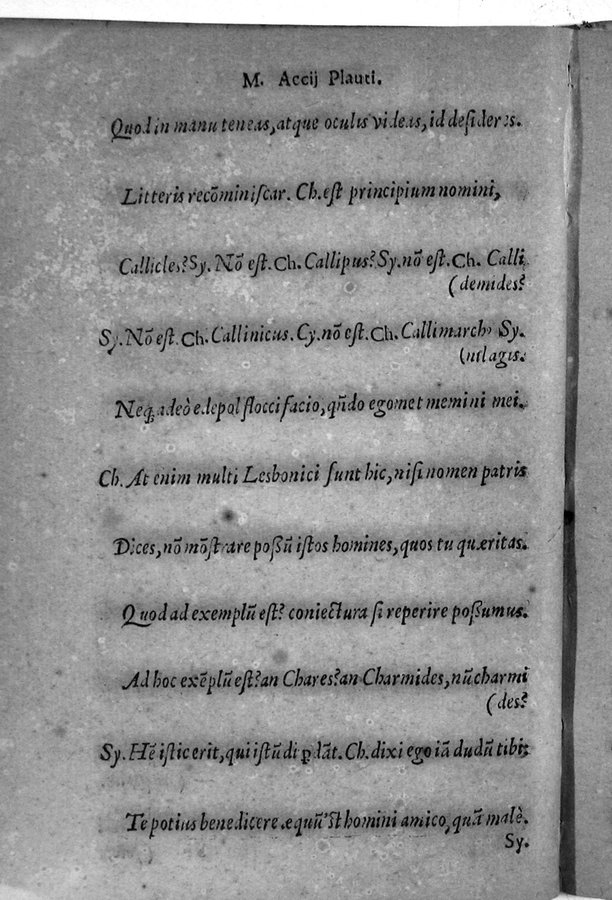 M. Accij Plauti.
Quod in manu teneas, atque oculis videas, id desideres.
Litteris recõminiscar. Ch. est principium nomini,
Callicles? Sy. Nõ est. Ch. Callipus? Sy. nõ est. Ch. Calli
(demides?
Sy. Nõ est. Ch. Callinicus. Cy. nõ est. Ch. Callimarchꝰ Sy.
(nil agis.
Neqꝫ adeò edepol flocci facio, qñdo egomet memini mei.
Ch. At enim multi Lesbonici sunt hic, nisi nomen patris
Dices, nõ mõstrare possũ istos homines, quos tu quæritas.
Quod ad exemplũ est? coniectura si reperire possumus.
Ad hoc exẽplũ est? an Chares? an Charmides, nũ charmi
(des?
Sy. Hẽ istic erit, qui istũ di ꝑdãt. Ch. dixi ego iã dudũ tibi:
Te potius benedicere æquũ'st homini amico, quã malè.
Sy.